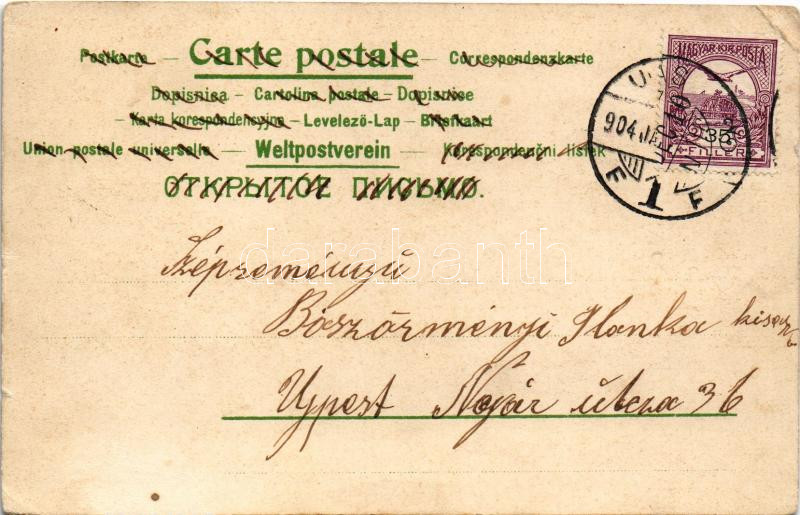 Postkarte – Carte postale – Correspondenzkarte
Dopisnica – Cartolina postale – Dopisnice
– Karta korespondencyjna – Levelező-Lap – Briefkaart
Union postale universelle – Weltpostverein – Korespondenční lístek
ОТКРЫТОЕ ПИСЬМО.
MAGYAR KIR. POSTA
35
FILLER
904
1
E F
darabanth
Szépreményű
Böszörményi Ilanka
Ujpest Nyár útcza 36